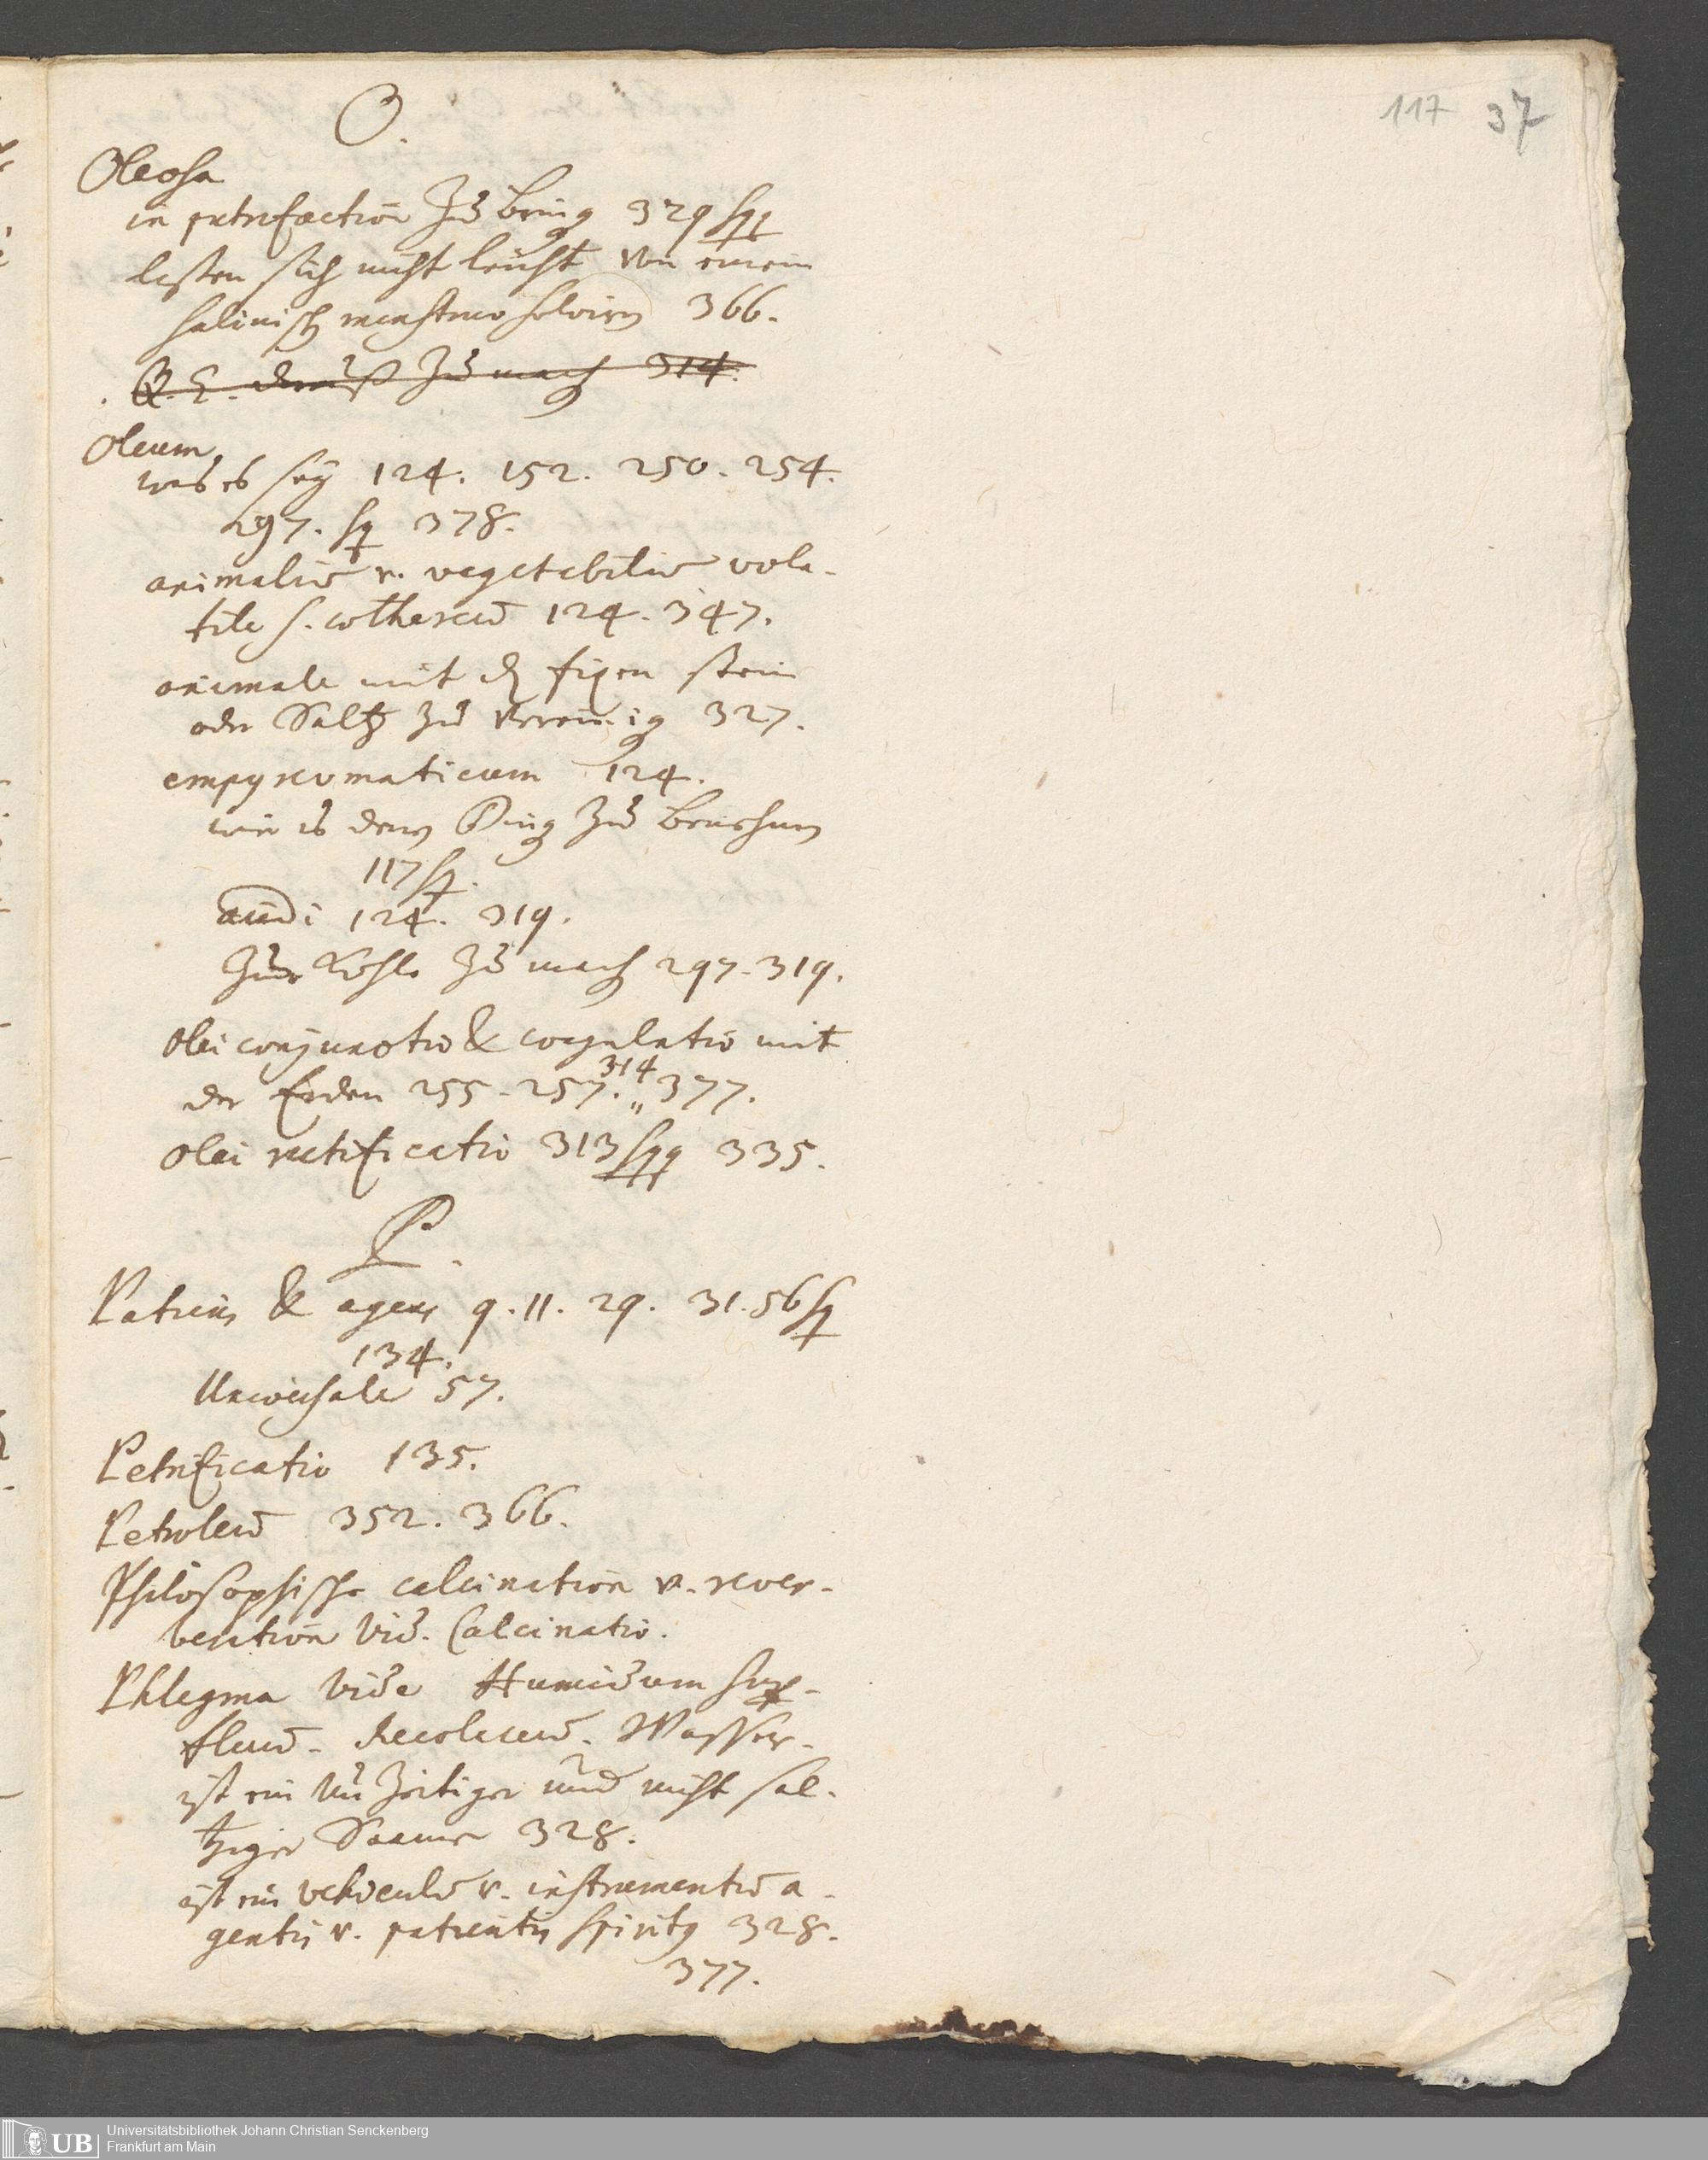 117 37
O.
Oleosa
in putrefaction zu bring 329 sqq
lassen sich nicht leicht von einem
salinisch menstruo solvirn 366.
Q. E. drauß zu mach 314.
Oleum
was es sey 124. 152. 250. 254.
297. sq 378.
animaliū v. vegetabiliū vola-
tile s. æthereū 124. 347.
animale mit d fixen stein
oder Saltz zu vereinig 327.
empyreumaticum 124.
wie es dem Ding zu benehmen
117 sq.
acidi 124. 319.
Zur Kohle zu mach 297. 319.
Olei conjunctio & coagulatio mit
der Erden 255. 257. 314 377.
Olei rectificatio 313 sqq 335.
P.
Patiens & agens 9. 11. 29. 31. 56 sq
134.
Universale 57.
Petrificatio 135.
Petroleū 352. 366.
Philosophische calcination v. rever-
beration vid. Calcinatio.
Phlegma vide Humidum sup-
fluū. Recolaceū. Wasser.
ist ein unzeitiger und nicht sal-
tziger Saame 328.
ist ein vehiculū v. instrumentū a-
gentis v. patientis spiritq 328.
377.
UB
Universitätsbibliothek Johann Christian Senckenberg
Frankfurt am Main